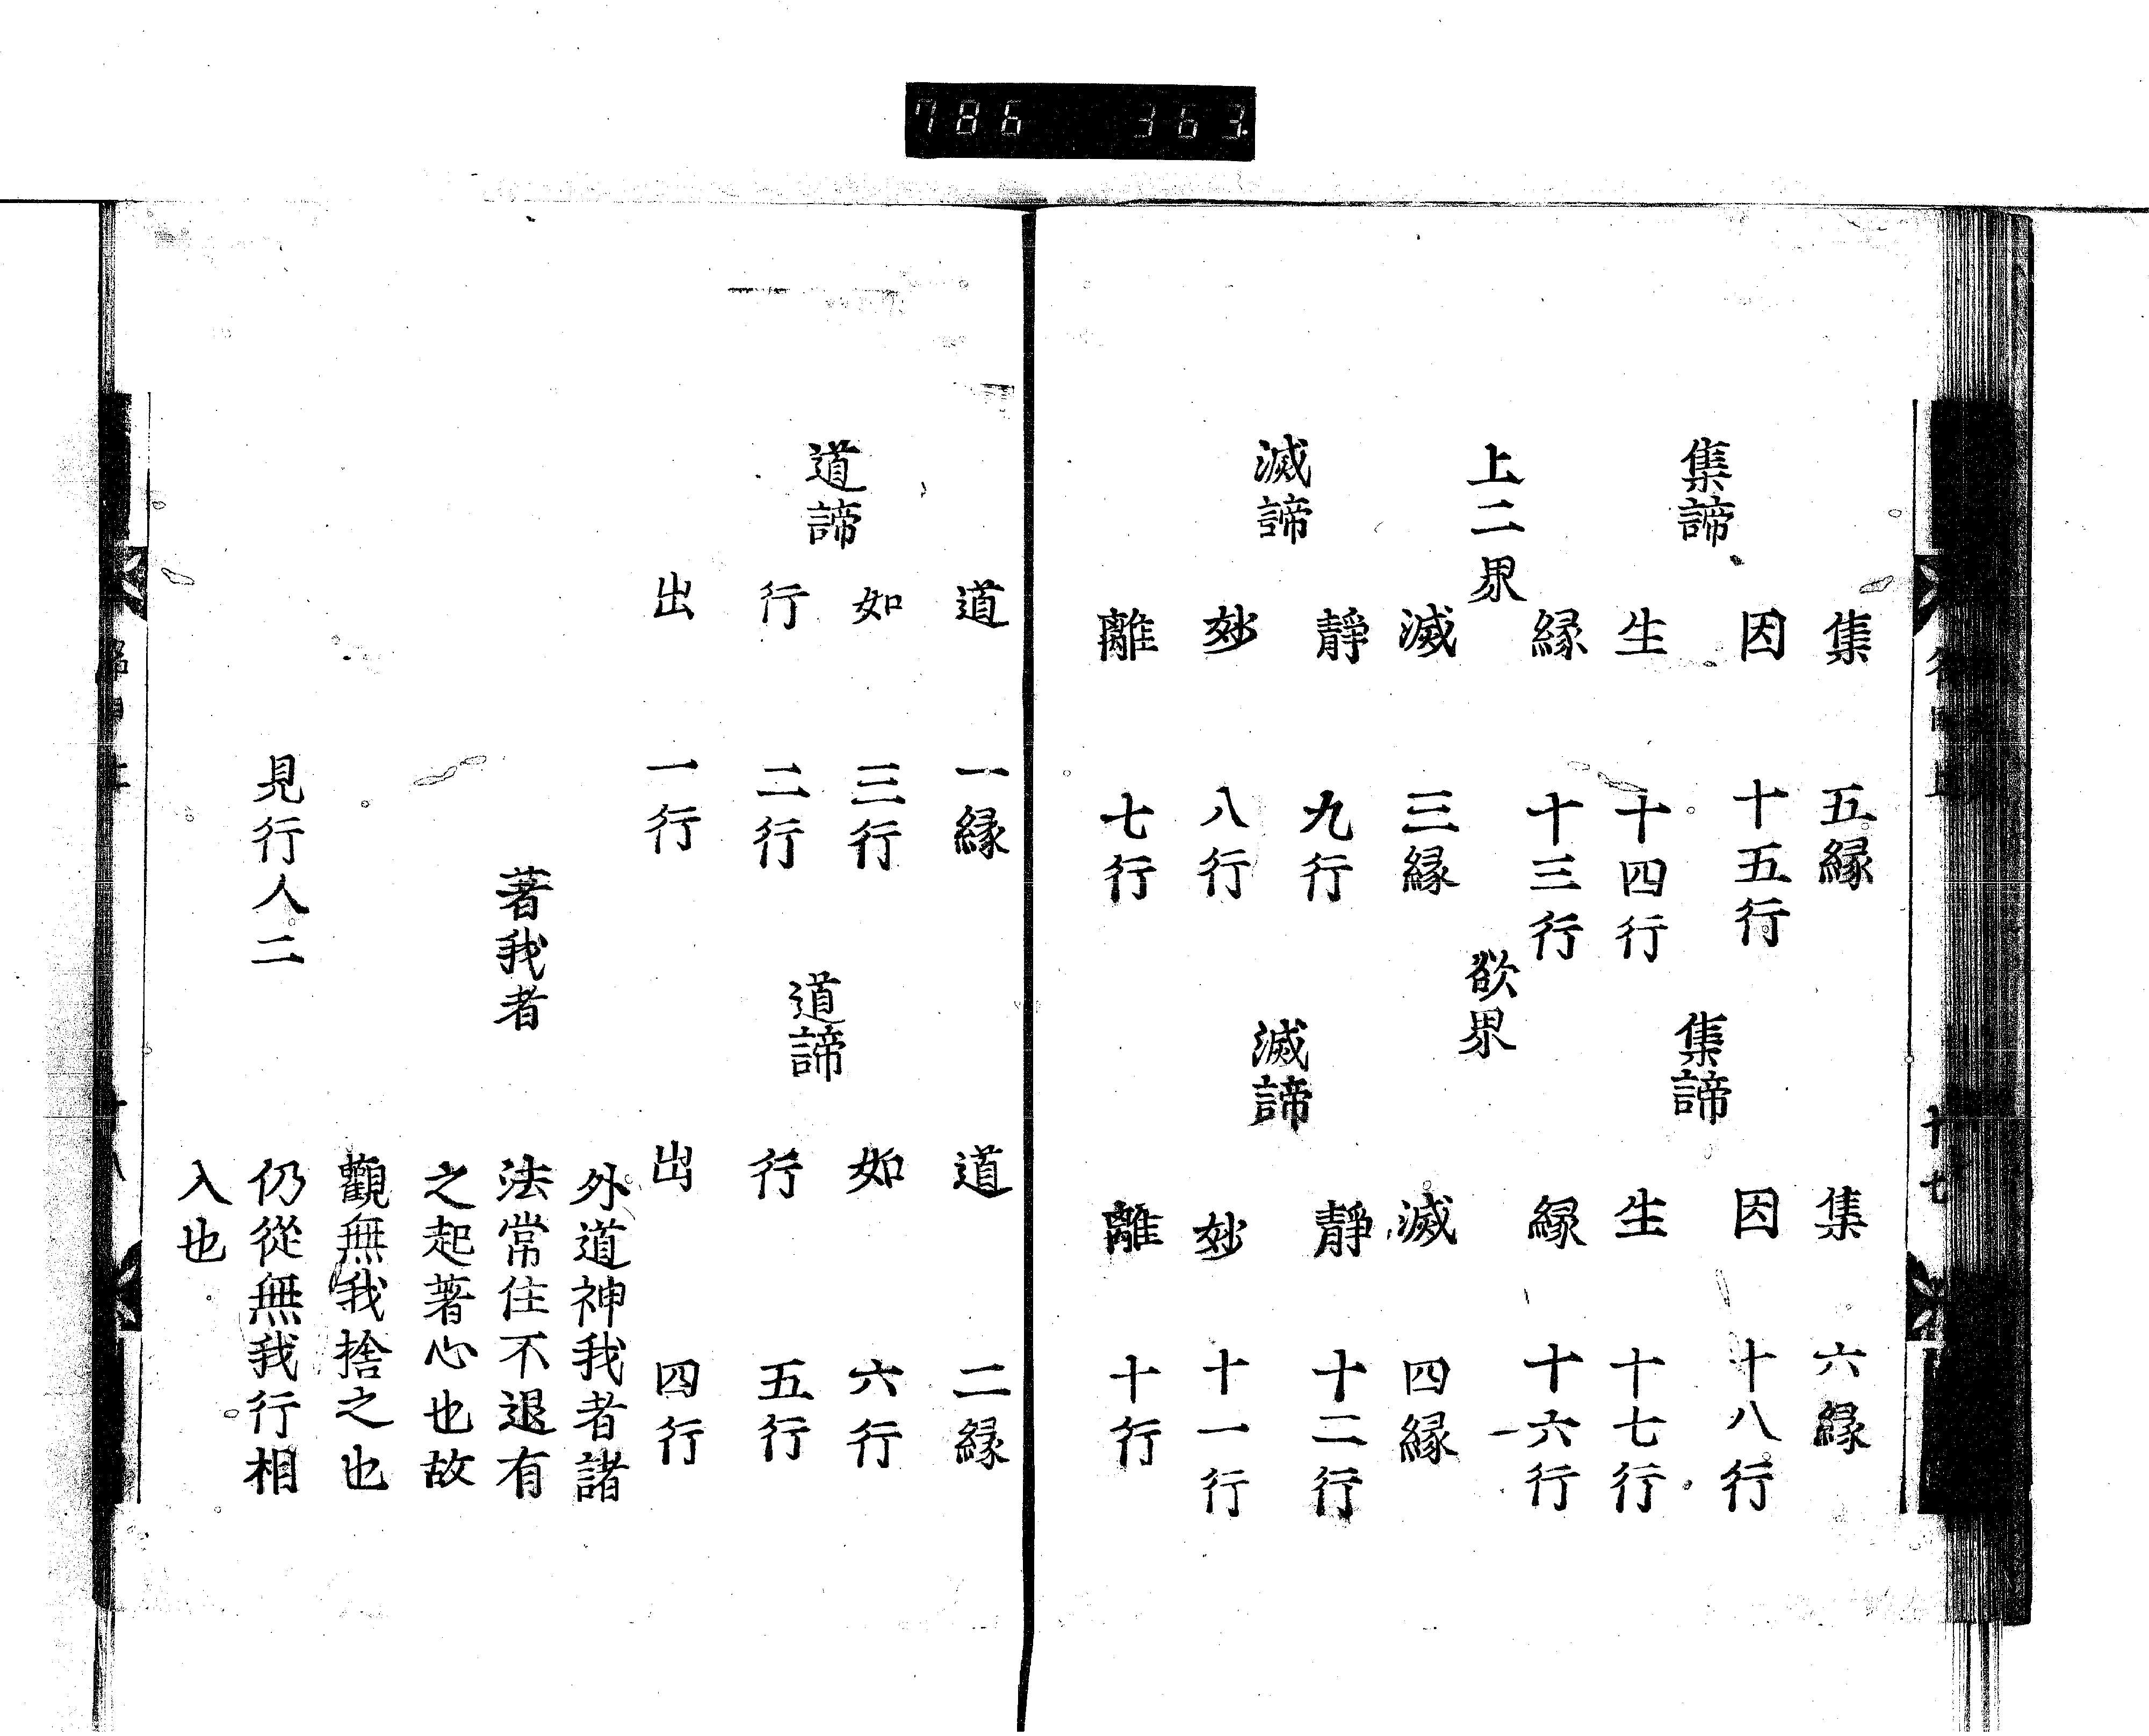 786 363.
集 五縁 集 六縁
集諦 集諦
因 十五行 因 十八行
生 十四行 生 十七行
縁 十三行 縁 十六行
上二界 欲界
滅 三縁 滅 四縁
靜 九行 靜 十二行
滅諦 滅諦
妙 八行 妙 十一行
離 七行 離 十行
道 一縁 道 二縁
如 三行 如 六行
道諦 道諦
行 二行 行 五行
出 一行 出 四行
外道神我者諸
著我者 法常住不退有
之起著心也故
觀無我捨之也
見行人二 仍從無我行相
入也
十七